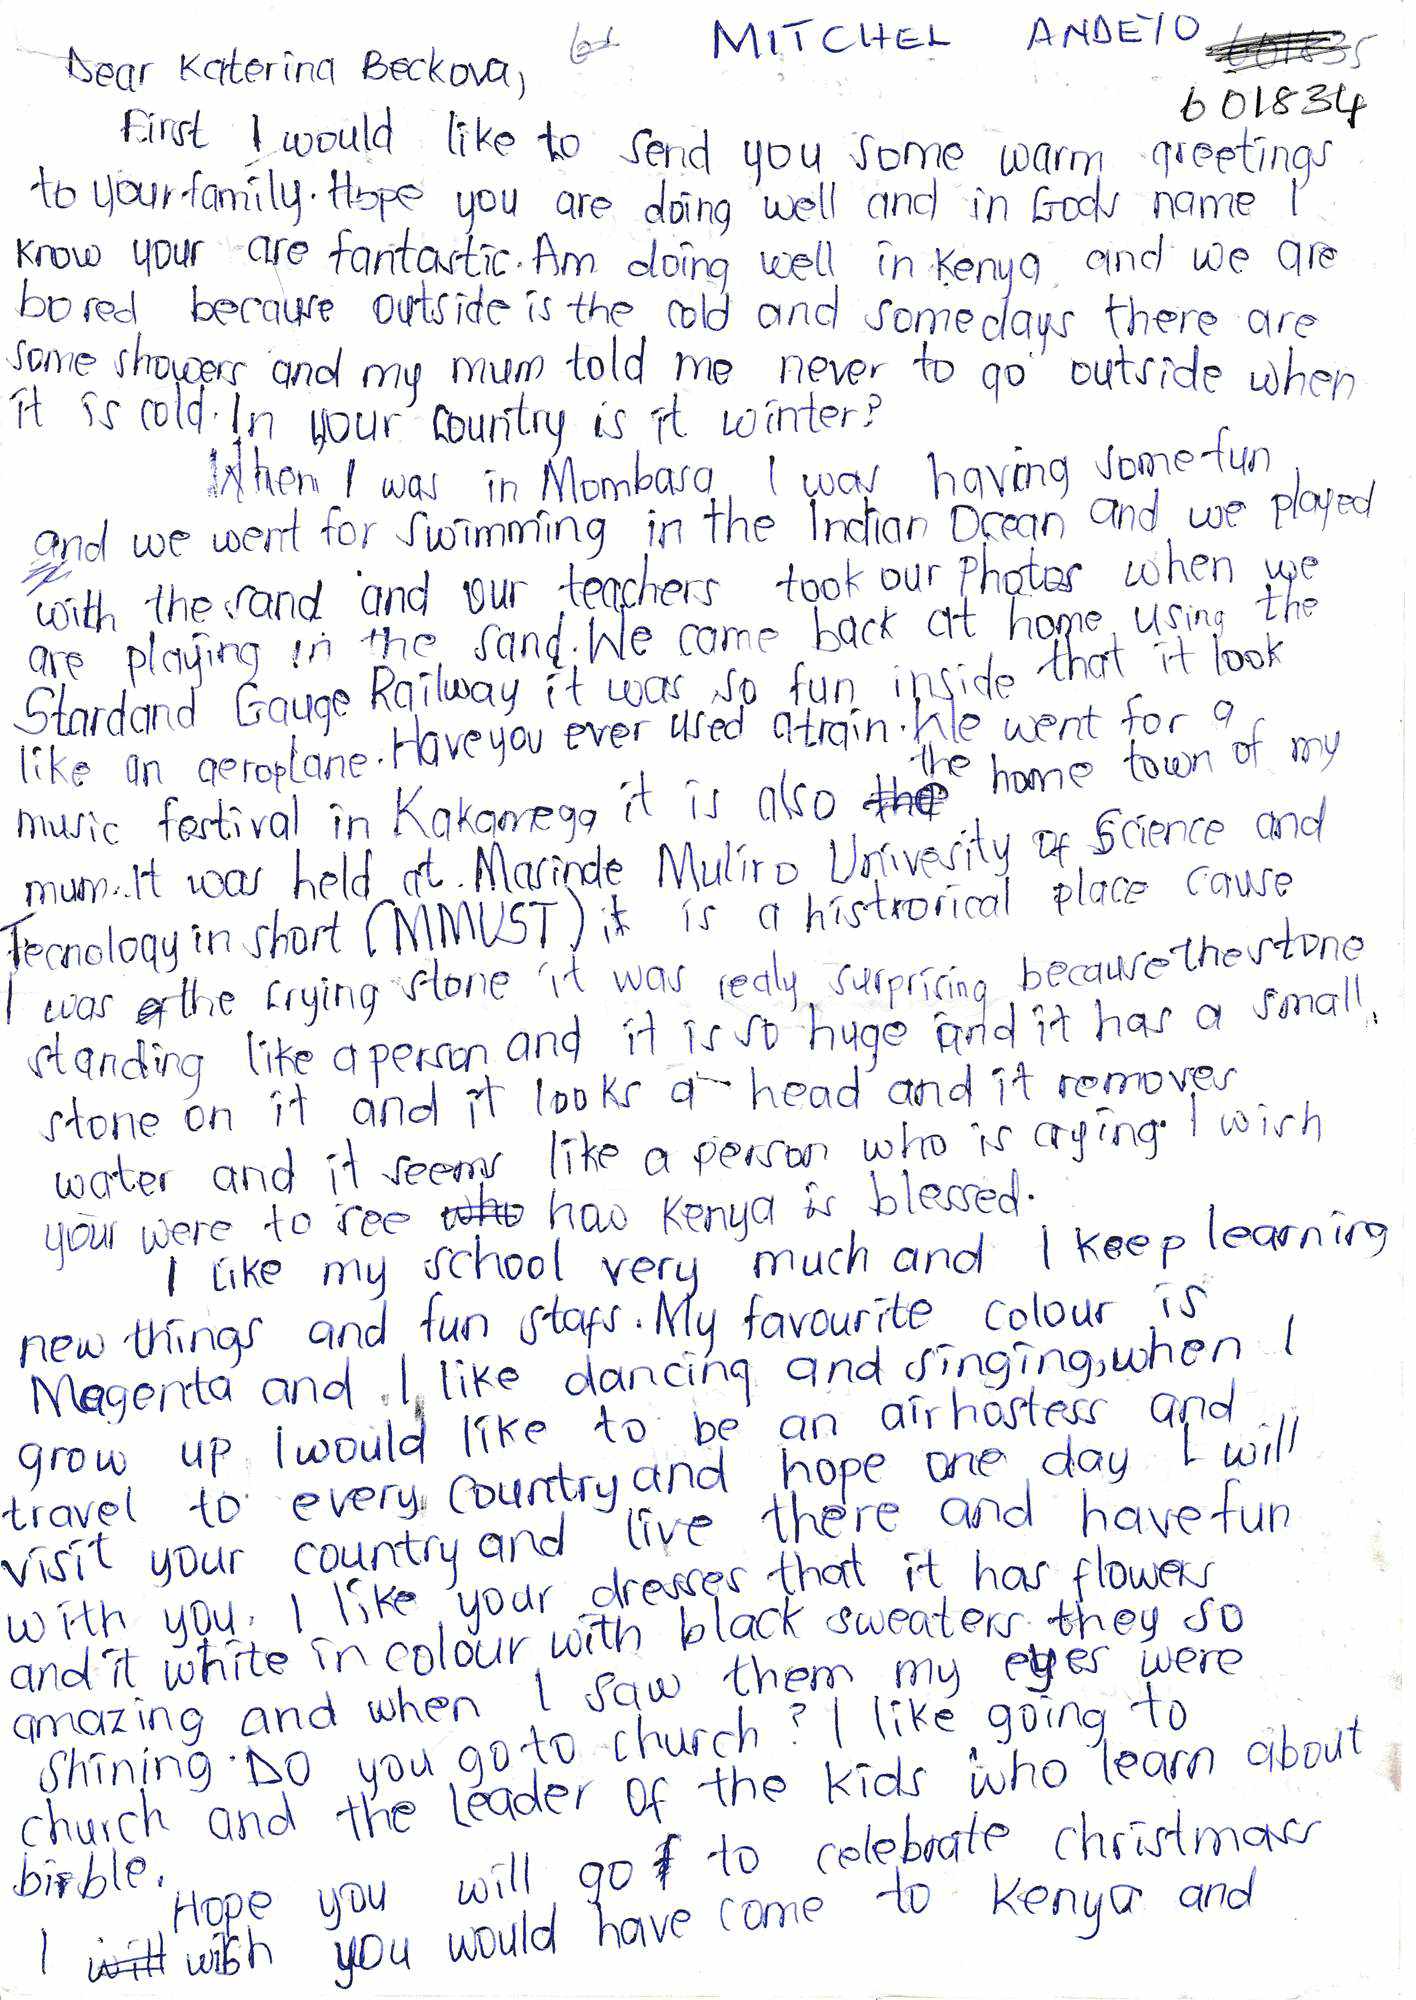 MITCHEL ANDEYO
601834
Dear Katerina Beckova,
First I would like to send you some warm greetings
to your family. Hope you are doing well and in Gods name I
know your are fantastic. Am doing well in Kenya and we are
bored because outside is the cold and somedays there are
some showers and my mum told me never to go outside when
it is cold. In your country is it winter?
When I was in Mombasa I was having some fun
and we went for swimming in the Indian Ocean and we played
with the sand and our teachers took our photos when we
are playing in the sand. We came back at home using the
Stardand Gauge Railway it was so fun inside that it look
like an aeroplane. Have you ever used a train. We went for a
music festival in Kakamega it is also the home town of my
mum. It was held at Masinde Muliro Univesity of Science and
Tecnology in short (MMUST) it is a histrorical place cause
I was the crying stone it was realy surprising because the stone
standing like a person and it is so huge and it has a small
stone on it and it looks a head and it removes
water and it seems like a person who is crying. I wish
your were to see hao Kenya is blessed.
I like my school very much and I keep learning
new things and fun stafs. My favourite colour is
Magenta and I like dancing and singing, when I
grow up I would like to be an airhostess and
travel to every country and hope one day I will
visit your country and live there and have fun
with you. I like your dresses that it has flowers
and it white in colour with black sweaters they so
amazing and when I saw them my eyes were
shining. Do you go to church? I like going to
church and the leader of the kids who learn about
birble.
Hope you will go to celebrate christmass
I wish you would have come to Kenya and